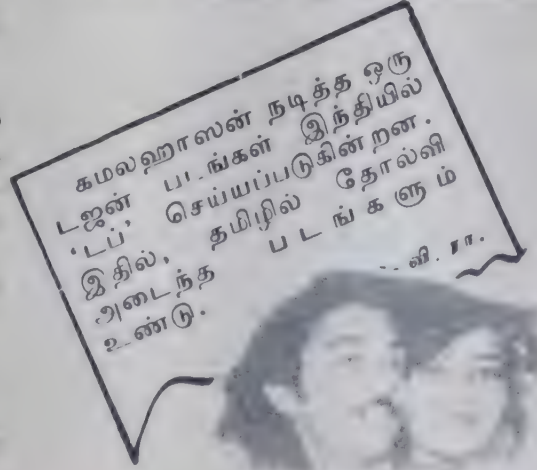 கமலஹாஸன் நடித்த ஒரு
டஜன் படங்கள் இந்தியில்
'டப்' செய்யப்படுகின்றன.
இதில், தமிழில் தோல்வி
அடைந்த படங்களும்
உண்டு.
வி. ரா.